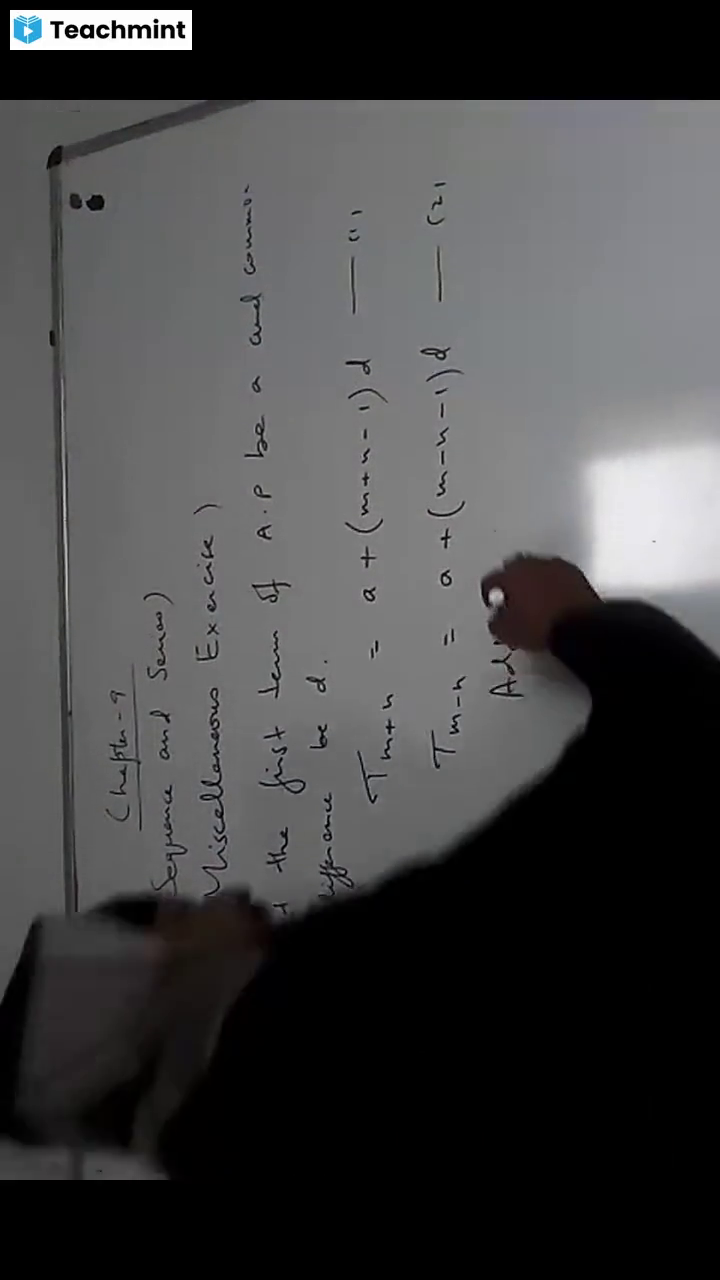 Teachmint
Chapter-9
Sequence and Series)
Miscellaneous Exercise)
the first term of A.P be a and common
difference be d.
Tm+n = a + (m+n-1)d — (1)
Tm-n = a + (m-n-1)d — (2)